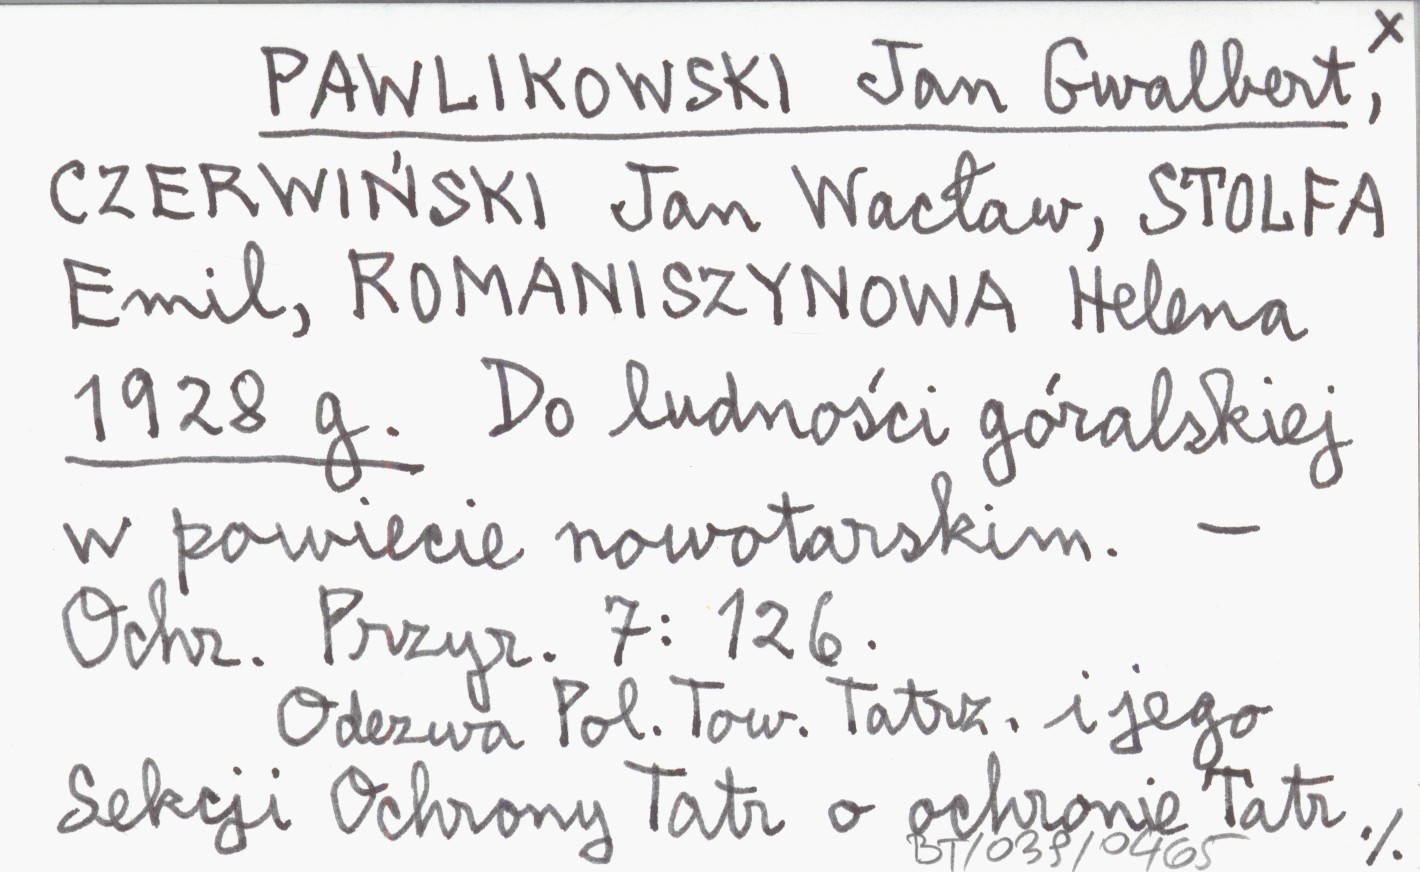 x
PAWLIKOWSKI Jan Gwalbert,
CZERWIŃSKI Jan Wacław, STOLFA
Emil, ROMANISZYNOWA Helena
1928 g. Do ludności góralskiej
w powiecie nowotarskim. —
Ochr. Przyr. 7: 126.
Odezwa Pol. Tow. Tatrz. i jego
Sekcji Ochrony Tatr o ochronie Tatr ./.
BT/039/0465